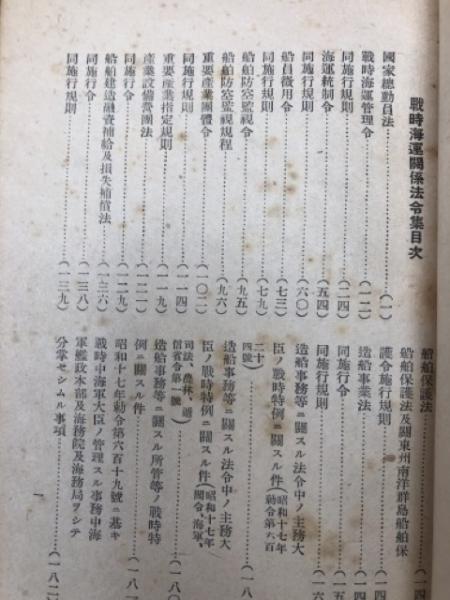 戰時海運關係法令集目次
國家總動員法……(一)
戰時海運管理令……(一二)
同施行規則……(二四)
海運統制令……(五四)
同施行規則……(六〇)
船員徵用令……(七三)
同施行規則……(七九)
船舶防空監視令……(九五)
船舶防空監視規程……(九六)
重要產業團體令……(一〇二)
同施行規則……(一一四)
重要產業指定規則……(一一九)
產業設備營團法……(一二一)
同施行令……(一二九)
船舶建造融資補給及損失補償法……(一三六)
同施行令……(一三八)
同施行規則……(一三九)
船舶保護法……(一四
船舶保護法及關東州南洋群島船舶保
護令施行規則……(一四
造船事業法……(一四
同施行令……(一五
同施行規則……(一六
造船事務等ニ關スル法令中ノ主務大
臣ノ戰時特例ニ關スル件(昭和十七年
勅令第六百
二十
四號)……(一八
造船事務等ニ關スル法令中ノ主務大
臣ノ戰時特例ニ關スル件(昭和十七年
閣令、海軍、
司法、農林、遞
信省令第一號)……(一八〇
造船事務等ニ關スル所管等ノ戰時特
例ニ關スル件……(一八
昭和十七年勅令第六百十九號ニ基キ
戰時中海軍大臣ノ管理スル事務中海
軍艦政本部及海務院及海務局ヲシテ
分掌セシムル事項……(一八二
一